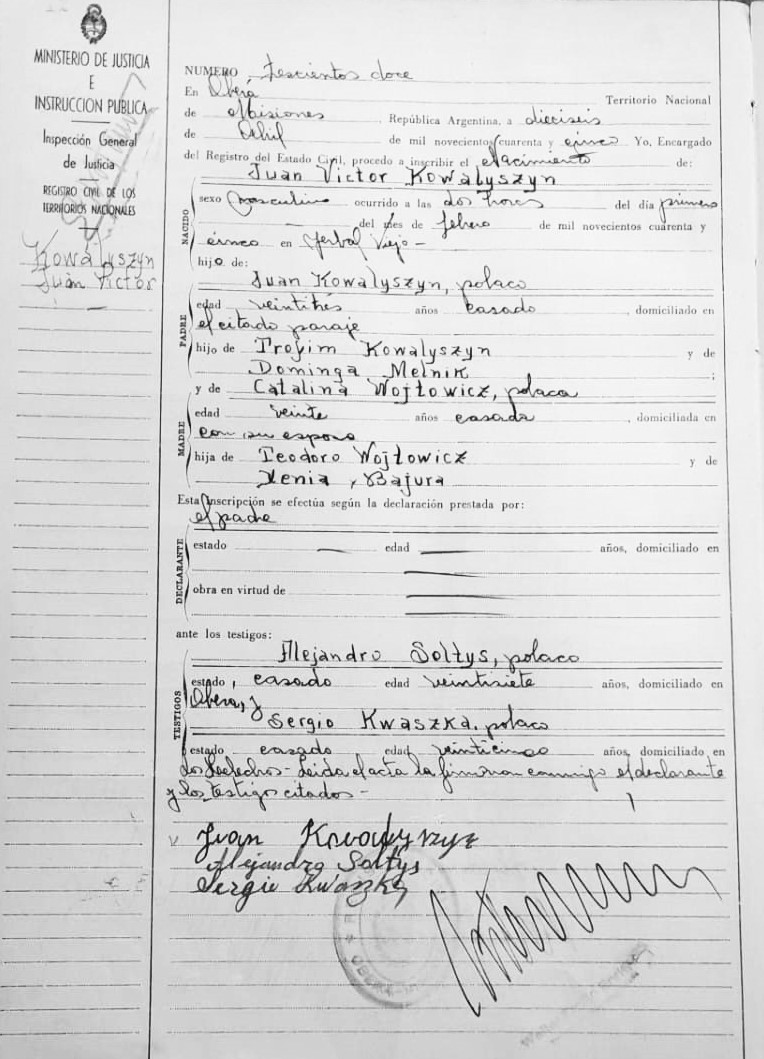 MINISTERIO DE JUSTICIA
E
INSTRUCCION PUBLICA
Inspección General
de Justicia
REGISTRO CIVIL DE LOS
TERRITORIOS NACIONALES
Kowalyszyn
Juan Victor
NUMERO Trescientos doce
En Oberá Territorio Nacional
de Misiones, República Argentina, a dieciseis
de Abril de mil novecientos cuarenta y cinco Yo, Encargado
del Registro del Estado Civil, procedo a inscribir el Nacimiento de:
Juan Victor Kowalyszyn
NACIDO
sexo masculino ocurrido a las dos horas del día primero
del mes de febrero de mil novecientos cuarenta y
cinco en Yerbal Viejo -
hijo de:
Juan Kowalyszyn, polaco
PADRE
edad veintitrés años casado, domiciliado en
el citado paraje
hijo de Trofim Kowalyszyn y de
Dominga Melnik;
y de Catalina Wojtowicz, polaca
MADRE
edad veinte años casada, domiciliada en
con su esposo
hija de Teodoro Wojtowicz y de
Xenia, Bajura
Esta inscripción se efectúa según la declaración prestada por:
el padre
DECLARANTE
estado — edad — años, domiciliado en
obra en virtud de
ante los testigos:
Alejandro Soltys, polaco
TESTIGOS
estado, casado edad veintisiete años, domiciliado en
Oberá, y
Sergio Kwaszka, polaco
estado casado edad veinticinco años, domiciliado en
Los Helechos - Leida el acta la firman conmigo el declarante
y los testigo citados -
Juan Kowalyszyn
Alejandro Soltys
Sergio Kwaszka